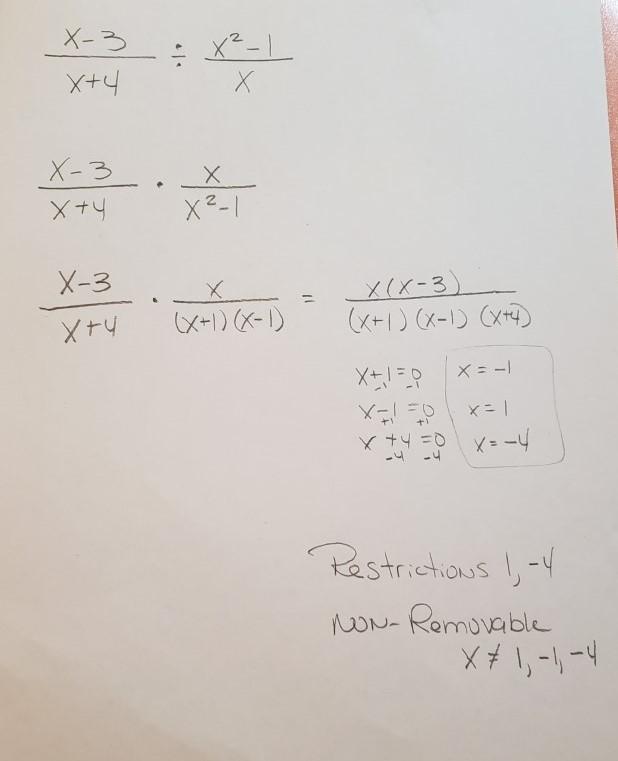 x-3/x+4 ÷ x²-1/x
x-3/x+4 · x/x²-1
x-3/x+4 · x/(x+1)(x-1) = x(x-3)/(x+1)(x-1)(x+4)
x+1=0 x=-1
-1 -1
x-1=0 x=1
+1 +1
x+4=0 x=-4
-4 -4
Restrictions 1,-4
NON-Removable
x≠1,-1,-4